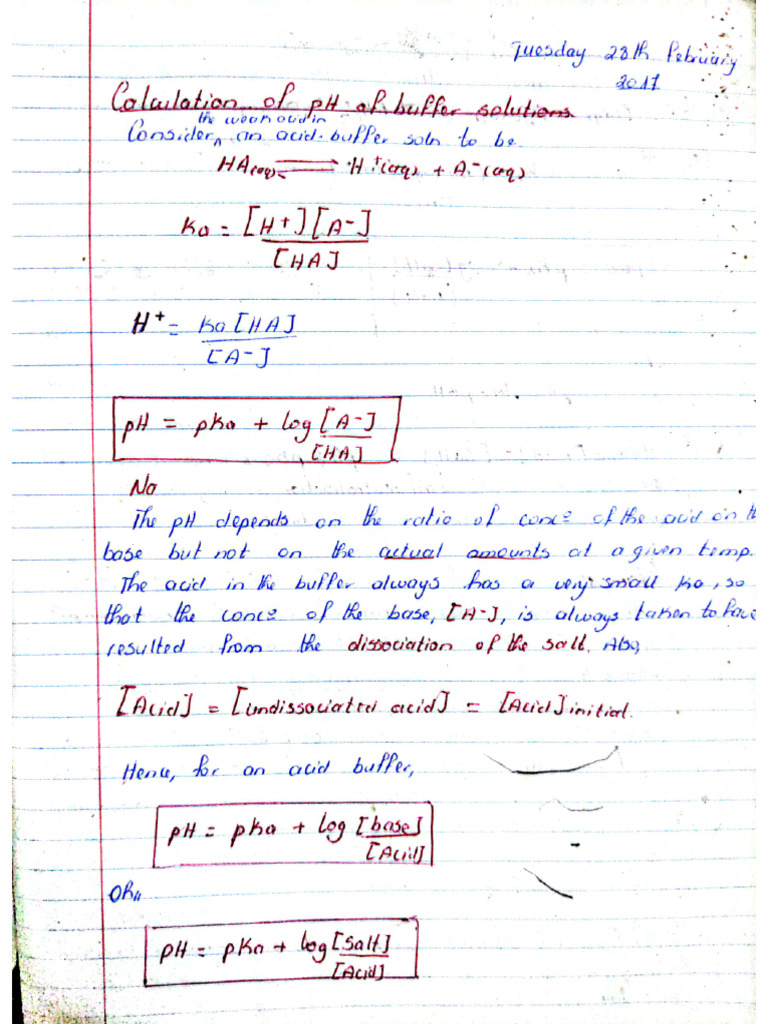 Tuesday 28th February
2017
Calculation of pH of buffer solutions
the weak acid in
Consider ^ an acid buffer soln to be
HA(aq) ⇌ H+(aq) + A-(aq)
Ka = [H+][A-]
[HA]
H+ = Ka[HA]
[A-]
pH = pKa + log [A-]
[HA]
No
The pH depends on the ratio of concs of the acid on
base but not on the actual amounts at a given temp.
The acid in the buffer always has a very small Ka, so
that the concs of the base, [A-], is always taken to have
resulted from the dissociation of the salt. Also,
[Acid] = [undissociated acid] = [Acid]initial.
Hence, for an acid buffer,
pH = pKa + log [base]
[Acid]
OR
pH = pKa + log [Salt]
[Acid]